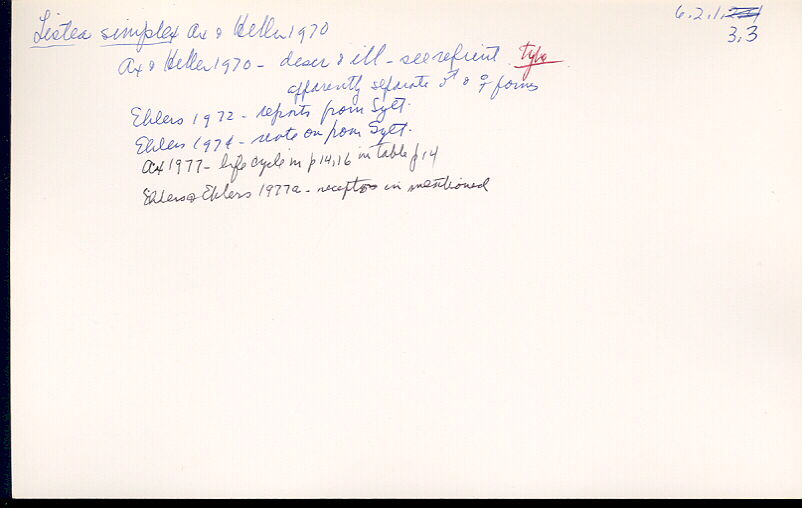 Listea simplex Ax & Heller 1970
6.2.1.
3.3
Ax & Heller 1970 - descr & ill - see reprint type
apparently separate ♂ & ♀ forms
Ehlers 1972 - reports from Sylt.
Ehlers 1974 - note on from Sylt.
Ax 1977 - life cycle in p 14, 16 in table p 14
Ehlers & Ehlers 1977a - receptors in mentioned